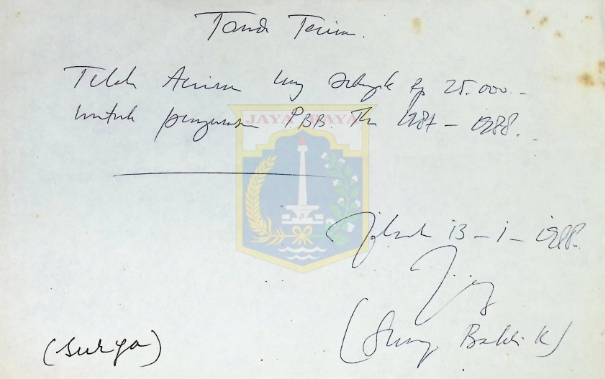 Tanda Terima.
Telah diterima uang sebanyak Rp 25.000.-
Untuk pengurusan PBB. Th 1987 - 1988.
JAYA RAYA
Jakarta 13-1-1988.
(Surya)
Bakti K)